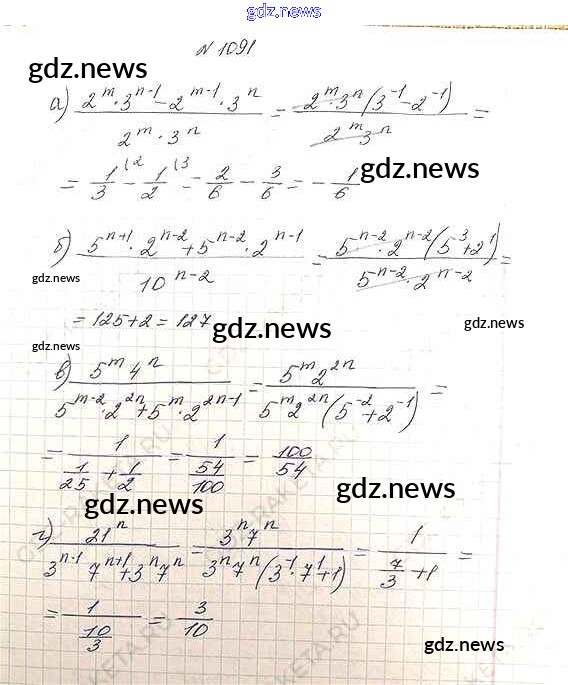 gdz.news
N 1091
gdz.news
а) (2^m · 3^(n-1) - 2^(m-1) · 3^n) / (2^m · 3^n) = (2^m · 3^n (3^(-1) - 2^(-1))) / (2^m 3^n) =
= 1/3 (2 - 1/2 (3 = 2/6 - 3/6 = - 1/6
gdz.news
б) (5^(n+1) · 2^(n-2) + 5^(n-2) · 2^(n-1)) / 10^(n-2) = (5^(n-2) · 2^(n-2) (5^3 + 2^1)) / (5^(n-2) · 2^(n-2)) =
gdz.news
= 125 + 2 = 127
gdz.news
gdz.news
gdz.news
в) (5^m 4^n) / (5^(m-2) · 2^(2n) + 5^m · 2^(2n-1)) = (5^m 2^(2n)) / (5^m 2^(2n) (5^(-2) + 2^(-1))) =
= 1 / (1/25 + 1/2) = 1 / (54/100) = 100/54
gdz.news
gdz.news
г) 21^n / (3^(n-1) 7^(n+1) + 3^n 7^n) = (3^n 7^n) / (3^n 7^n (3^(-1) · 7^1 + 1)) = 1 / (7/3 + 1) =
= 1 / (10/3) = 3/10
gdz.news
gdz.news